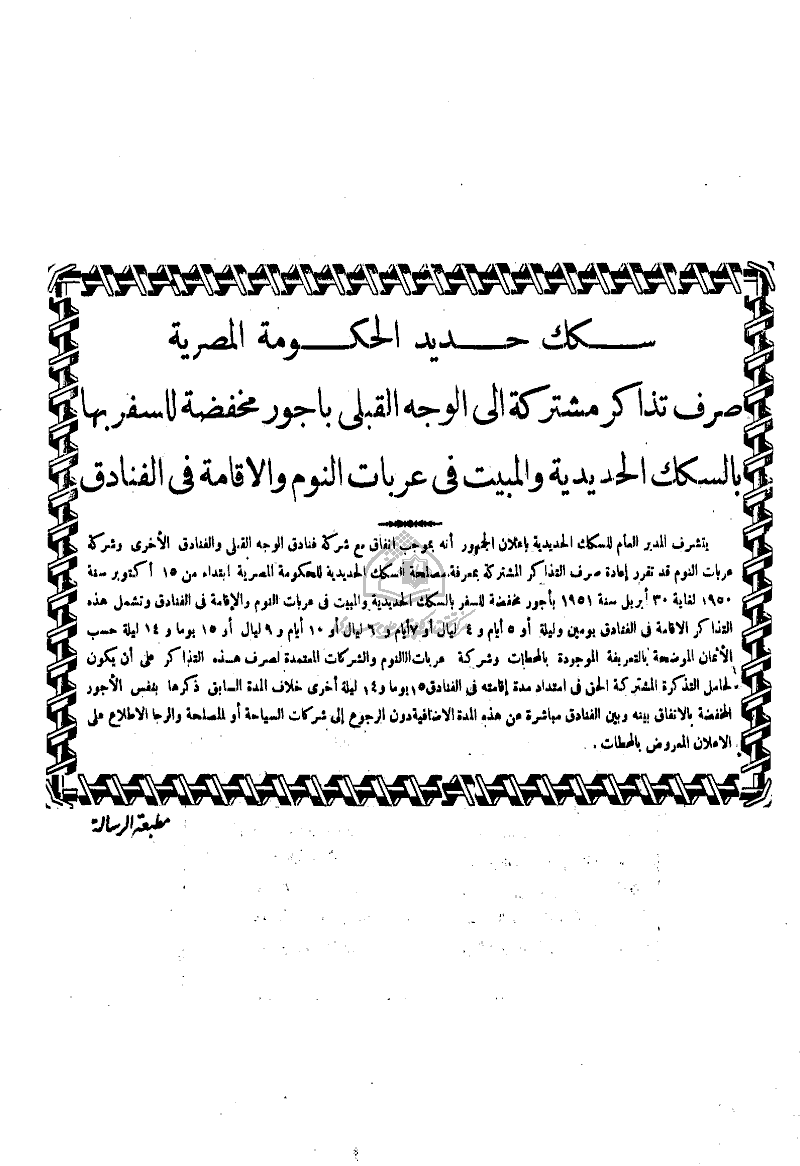 سكك حديد الحكومة المصرية
صرف تذاكر مشتركة الى الوجه القبلى باجور مخفضة للسفر بها
بالسكك الحديدية والمبيت فى عربات النوم والاقامة فى الفنادق
يتشرف المدير العام للسكك الحديدية بإعلان الجمهور أنه بموجب اتفاق مع شركة فنادق الوجه القبلى والفنادق الأخرى وشركة
عربات النوم قد تقرر إعادة صرف التذاكر المشتركة بمعرفة مصلحة السكك الحديدية للحكومة المصرية ابتداء من ١٥ أكتوبر سنة
١٩٥٠ لغاية ٣٠ أبريل سنة ١٩٥١ بأجور مخفضة للسفر بالسكك الحديدية والمبيت فى عربات النوم والإقامة فى الفنادق وتشمل هذه
التذاكر الاقامة فى الفنادق يومين وليلة أو ٥ أيام و ٤ ليال أو ٧ أيام و ٦ ليال أو ١٠ أيام و ٩ ليال أو ١٥ يوما و ١٤ ليلة حسب
الأثمان الموضحة بالتعريفة الموجودة بالمحطات وشركة عربات النوم والشركات المعتمدة لصرف هذه التذاكر على أن يكون
لحامل التذكرة المشتركة الحق فى امتداد مدة إقامته فى الفنادق ١٥ يوما و ١٤ ليلة أخرى خلاف المدة السابق ذكرها بنفس الأجور
المخفضة بالاتفاق بينه وبين الفنادق مباشرة عن هذه المدة الاضافية دون الرجوع إلى شركات السياحة أو المصلحة والرجا الاطلاع على
الاعلان المعروض بالمحطات .
مطبعة الرسالة